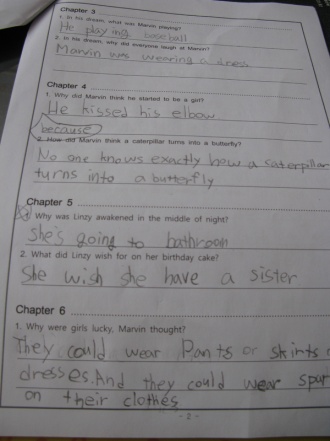 Chapter 3
1. In his dream, what was Marvin playing?
He playing baseball
2. In his dream, why did everyone laugh at Marvin?
Marvin was wearing a dress
Chapter 4
1. Why did Marvin think he started to be a girl?
He kissed his elbow
because
2. How did Marvin think a caterpillar turns into a butterfly?
No one knows exactly how a caterpillar
turns into a butterfly
Chapter 5
1. Why was Linzy awakened in the middle of night?
She's going to bathroom
2. What did Linzy wish for on her birthday cake?
She wish she have a sister
Chapter 6
1. Why were girls lucky, Marvin thought?
They could wear Pants or skirts
dresses. And they could wear
on their clothes
- 2 -